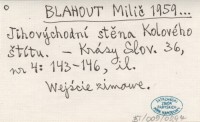 BLAHOUT Miliš 1959...
Jihovýchodní stěna Kolového
štítu. - Krásy Slov. 36,
nr 4: 143-146, il.
Wejście zimowe.